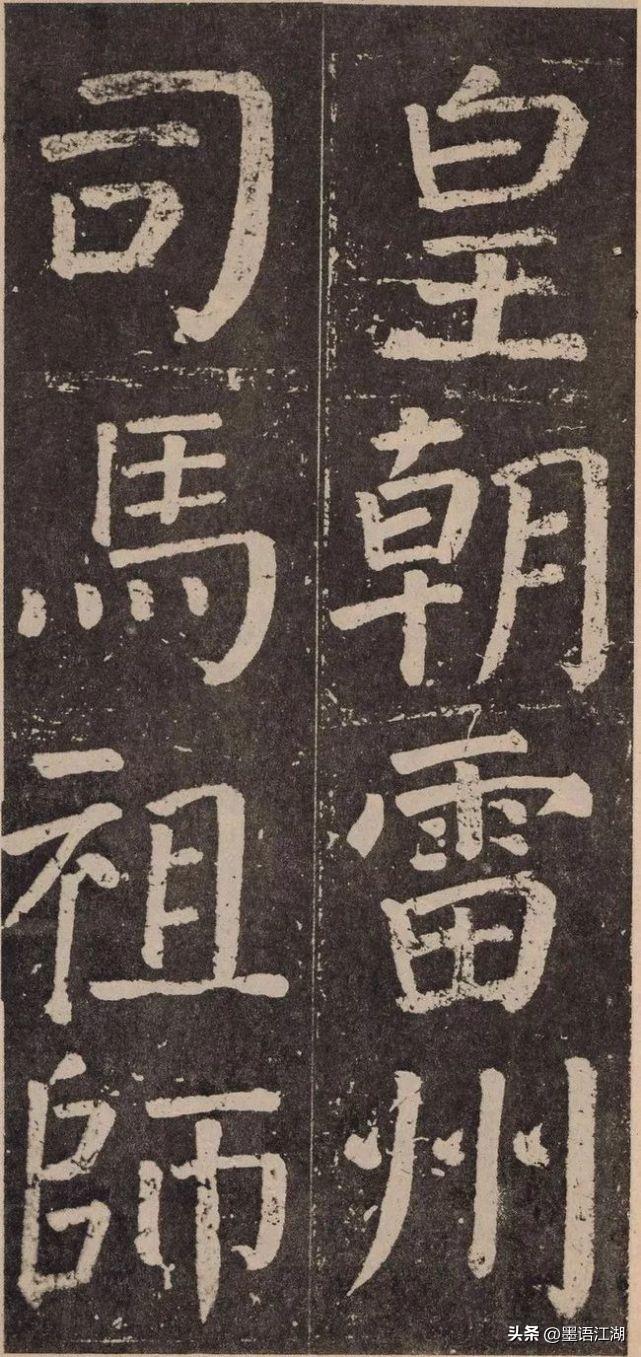 皇朝雷州
司馬祖師
头条 @墨语江湖